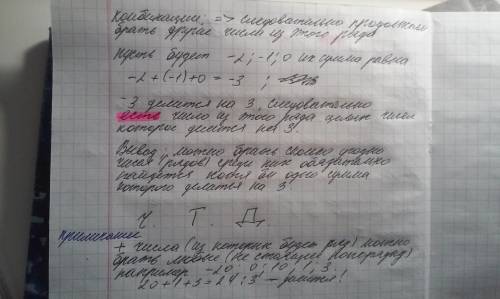 комбинации, => следовательно продолжаем
брать другие числа из этого ряда
Пусть будет -2; -1; 0 их сумма равна
-2 + (-1) + 0 = -3 ;
-3 делится на 3, следовательно
есть число из этого ряда целых чисел
которое делится на 3.
Вывод: можно брать сколько угодно
чисел (рядов) среди них обязательно
найдется хотя бы одно сумма
которого делится на 3.
Ч. Т. Д
примечание
+ числа (из которых будет ряд) можно
брать любые (не стоящие попорядку)
например -20; 0; 10; 1; 3.
20+1+3=24; 3 — делится!